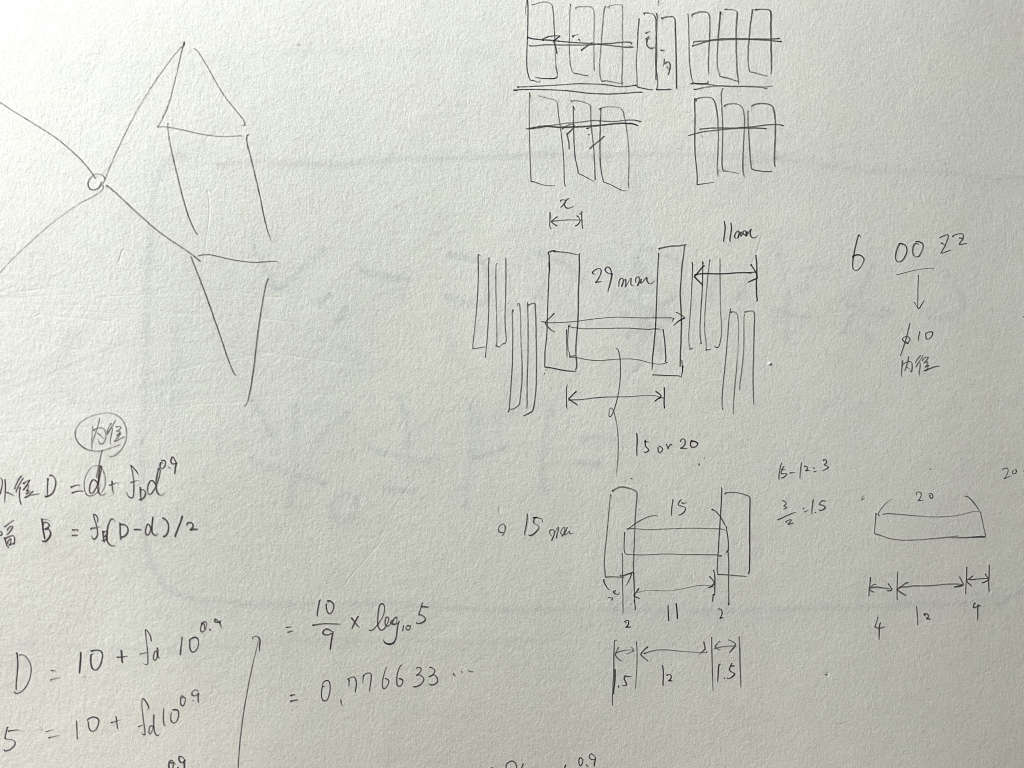 x
11mm
29mm
6 00 22
φ10
内径
15 or 20
内径
外径 D = d + f_D d^0.9
幅 B = f_B(D-d)/2
15mm
15
15-12=3
3/2 = 1.5
20
20
2 11 2
1.5 12 1.5
4 12 4
D = 10 + fd 10^0.9
5 = 10 + fd 10^0.9
= 10/9 × log₁₀5
= 0.776633...
0.9
0.9